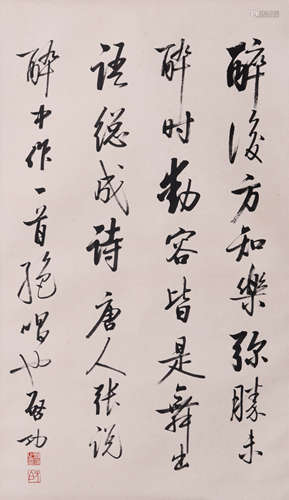 醉後方知樂弥勝未
醉时動容皆是舞出
语総成诗唐人张说
醉中作一首絶唱也启功